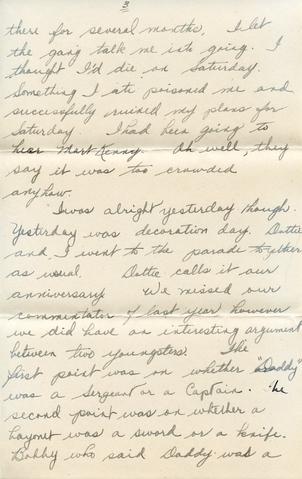 3
there for several months, I let
the gang talk me into going. I
thought I'd die on Saturday.
Something I ate poisoned me and
successfully ruined my plans for
Saturday. I had been going to
hear Mart Kenny. Oh well, they
say it was too crowded
anyhow.
I was alright yesterday though.
Yesterday was decoration day. Dottie
and I went to the parade together
as usual. Dottie calls it our
anniversary. We missed our
commentator of last year however
we did have an interesting argument
between two youngsters. The
first point was on whether "Daddy"
was a Sergeant or a Captain. The
second point was on whether a
bayonet was a sword or a knife.
Bobby who said Daddy was a